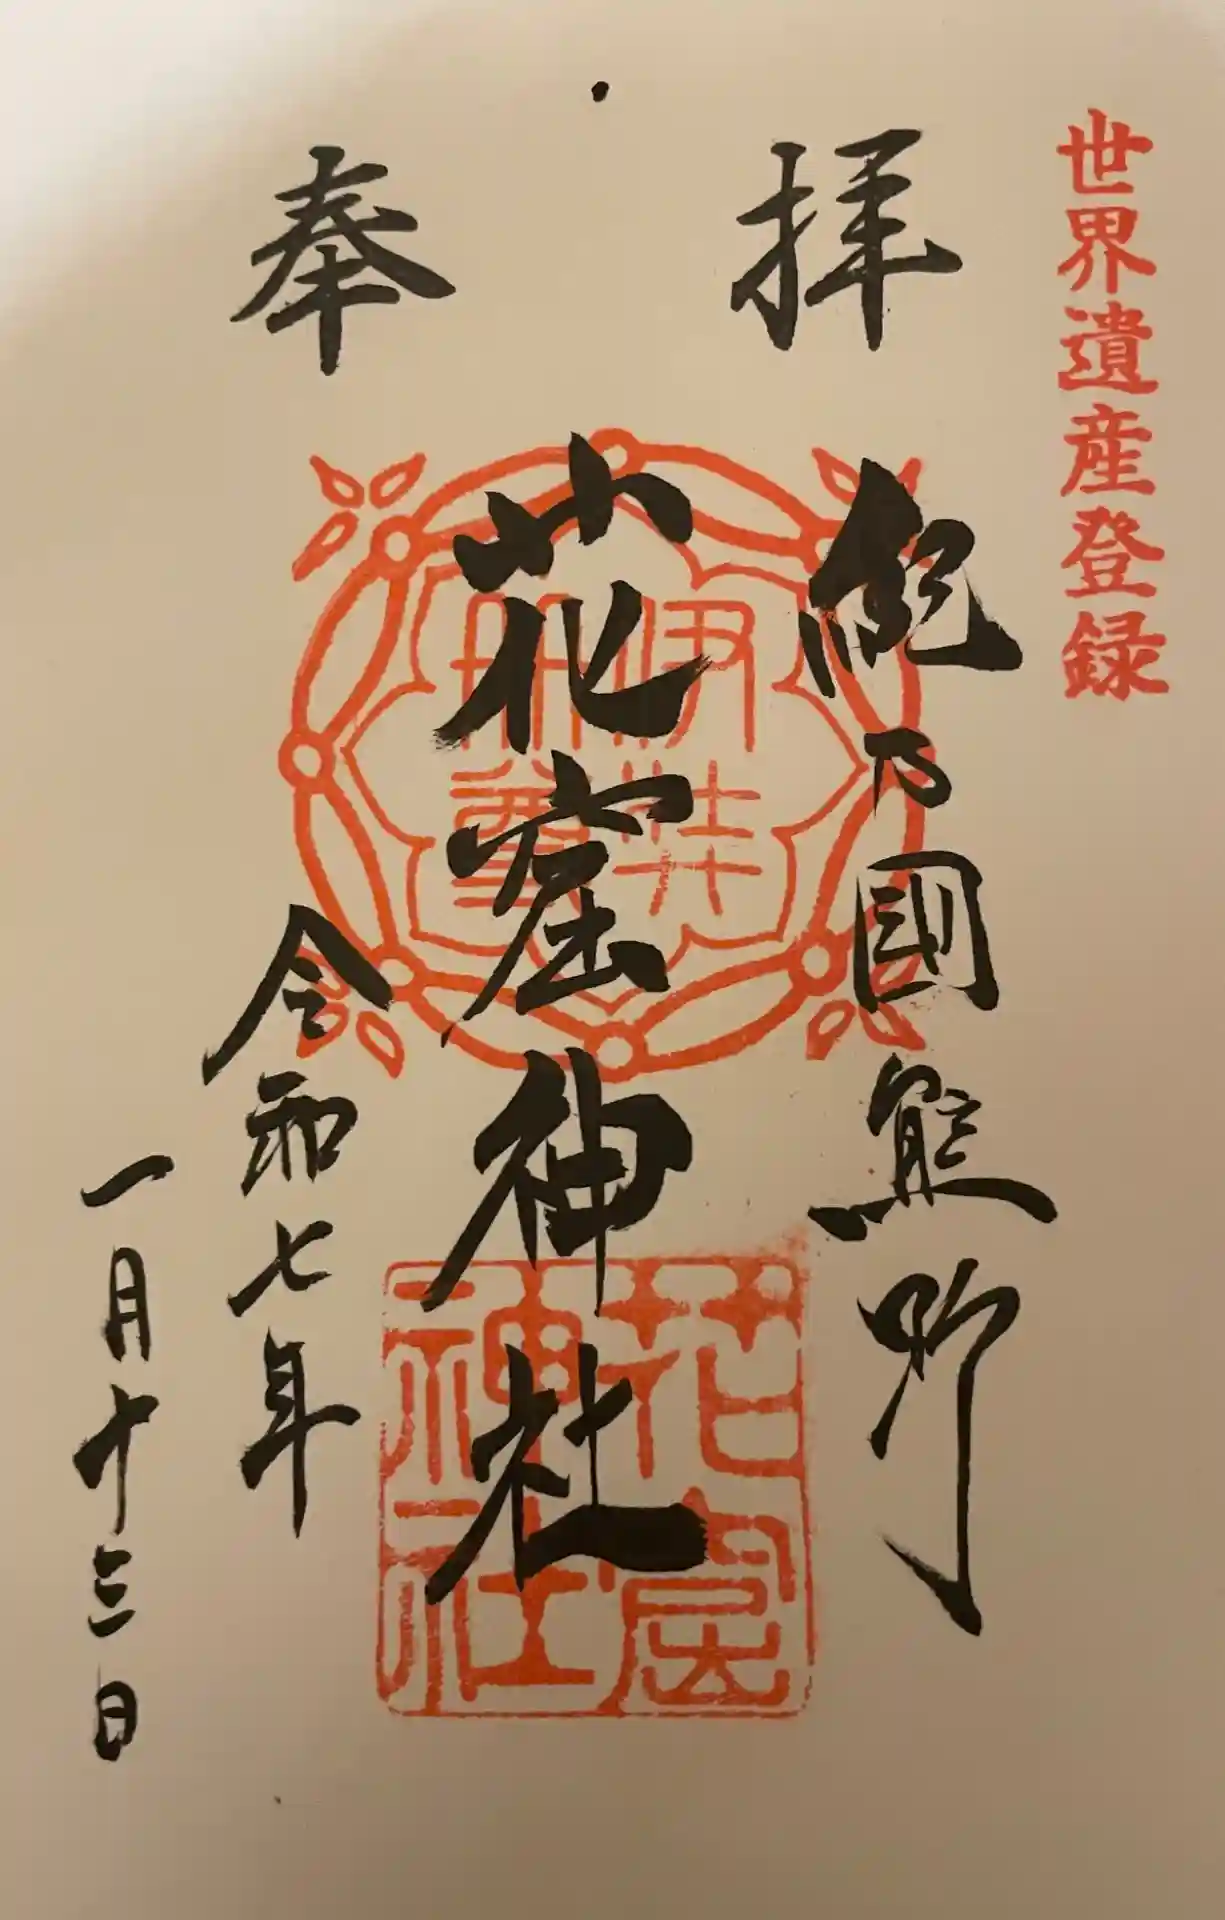 世界遺産登録
奉拝
紀乃國熊野
花窟神社
令和七年
一月十三日
伊弉
冊尊
花窟
神社